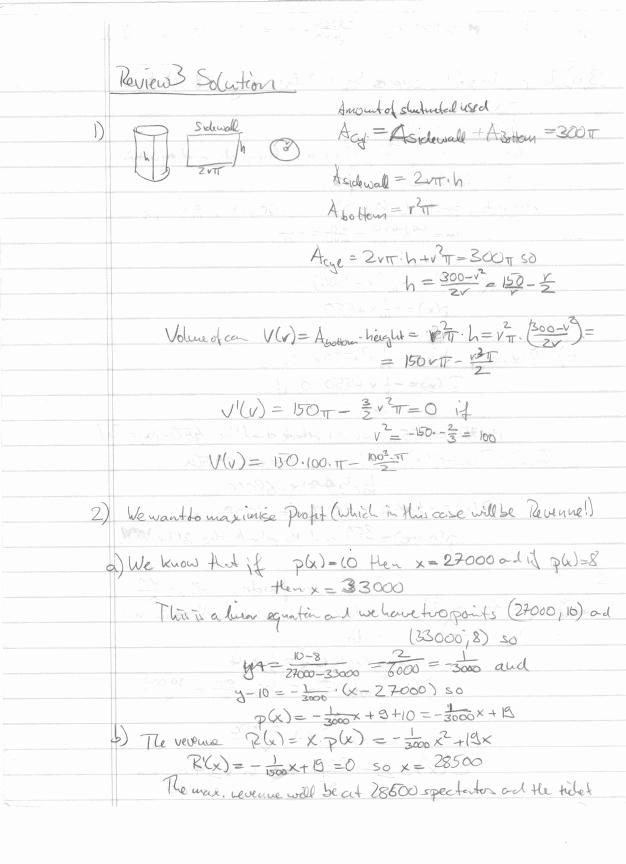 Review3 Solution
Amount of sheetmetal used
1) h Sidewall h 2rπ r A_cyl = A_sidewall + A_Bottom = 300π
A_sidewall = 2rπ·h
A_bottom = r²π
A_cyl = 2rπ·h + r²π = 300π so
h = (300-r²)/(2r) = 150/r - r/2
Volume of can V(r) = A_bottom·height = r²π·h = r²π·((300-r²)/(2r)) =
= 150rπ - r³π/2
V'(r) = 150π - 3/2 r²π = 0 if
r² = -150·-2/3 = 100
V(r) = 150·100·π - 100³·π/2
2) We want to maximise Profit (which in this case will be Revenue!)
a) We know that if p(x)=10 then x=27000 and if p(x)=8
then x = 33000
This is a linear equation and we have two points (27000, 10) ad
(33000, 8) so
= (10-8)/(27000-33000) = 2/6000 = -1/3000 and
y-10 = -1/3000·(x-27000) so
p(x) = -1/3000 x + 9 + 10 = -1/3000 x + 19
b) The revenue R(x) = x·p(x) = -1/3000 x² + 19x
R'(x) = -1/1500 x + 19 = 0 so x = 28500
The max. revenue will be at 28500 spectators and the ticket